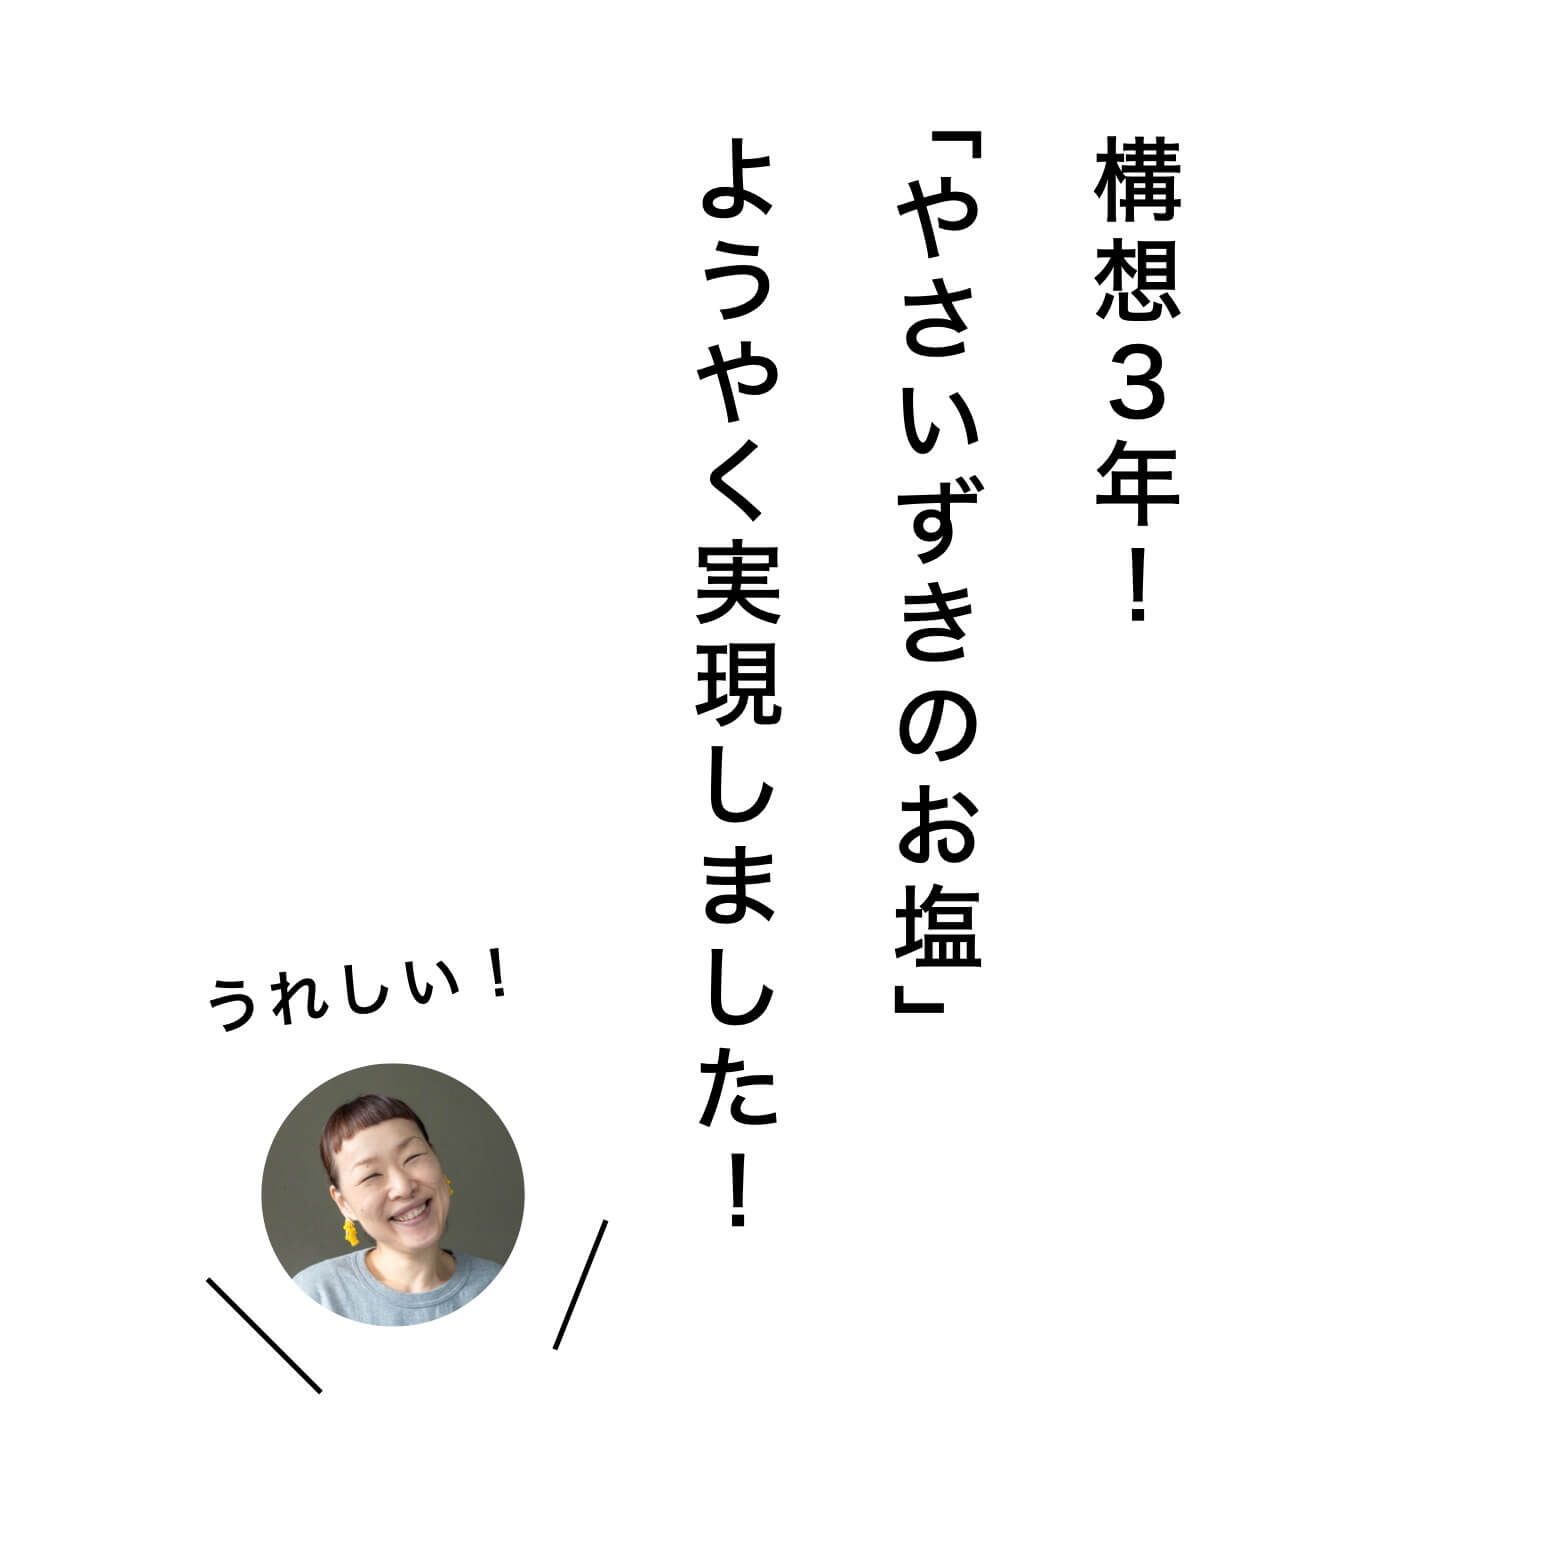 構想3年！
「やさいずきのお塩」
ようやく実現しました！
うれしい！